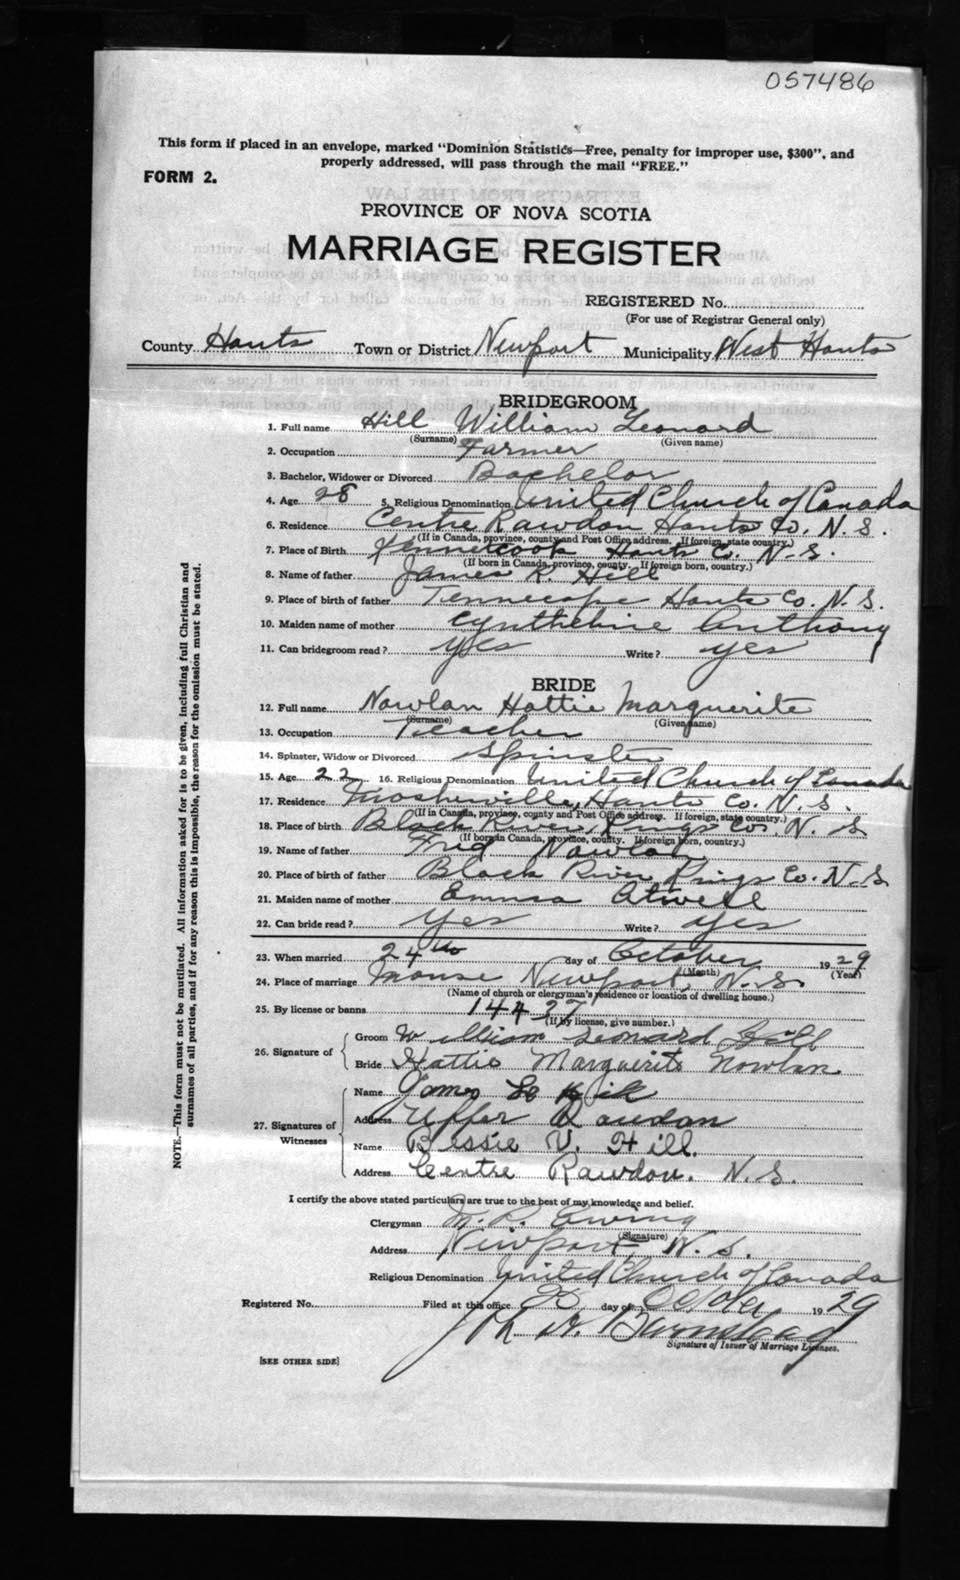 057486
This form if placed in an envelope, marked "Dominion Statistics—Free, penalty for improper use, $300", and
properly addressed, will pass through the mail "FREE."
FORM 2.
PROVINCE OF NOVA SCOTIA
MARRIAGE REGISTER
REGISTERED No.
(For use of Registrar General only)
County Hants Town or District Newport Municipality West Hants
BRIDEGROOM
1. Full name Hill William Leonard
(Surname) (Given name)
2. Occupation Farmer
3. Bachelor, Widower or Divorced Bachelor
4. Age 28 5. Religious Denomination United Church of Canada
6. Residence Centre Rawdon Hants Co. N.S.
(If in Canada, province, county and Post Office address. If foreign, state country.)
7. Place of Birth Kennetcook Hants Co. N.S.
(If born in Canada, province, county. If foreign born, country.)
8. Name of father James R. Hill
9. Place of birth of father Tennecape Hants Co. N.S.
10. Maiden name of mother Anthony
11. Can bridegroom read? yes Write? yes
BRIDE
12. Full name Nowlan Hattie Marguerite
(Surname) (Given name)
13. Occupation Teacher
14. Spinster, Widow or Divorced Spinster
15. Age 22 16. Religious Denomination United Church of Canada
17. Residence Mosherville, Hants Co. N.S.
(If in Canada, province, county and Post Office address. If foreign, state country.)
18. Place of birth Black River, Kings Co. N.S
(If born in Canada, province, county. If foreign born, country.)
19. Name of father Fred Nowlan
20. Place of birth of father Black River Kings Co. N.S
21. Maiden name of mother Emma Atwell
22. Can bride read? Yes Write? yes
23. When married 24th day of October 1929
(Month) (Year)
24. Place of marriage Manse Newport, N.S.
(Name of church or clergyman's residence or location of dwelling house.)
25. By license or banns 14437
(If by license, give number.)
26. Signature of
Groom William Leonard Hill
Bride Hattie Marguerite Nowlan
27. Signatures of Witnesses
Name James
Address Upper Rawdon
Name Bessie V. Hill.
Address Centre Rawdon. N.S.
I certify the above stated particulars are true to the best of my knowledge and belief.
Clergyman Ewing
(Signature)
Address Newport, N.S.
Religious Denomination United Church of Canada
Registered No. Filed at this office day of October 1929
Signature of Issuer of Marriage Licenses.
[SEE OTHER SIDE]
NOTE.—This form must not be mutilated. All information asked for is to be given, including full Christian and
surnames of all parties, and if for any reason this is impossible, the reason for the omission must be stated.